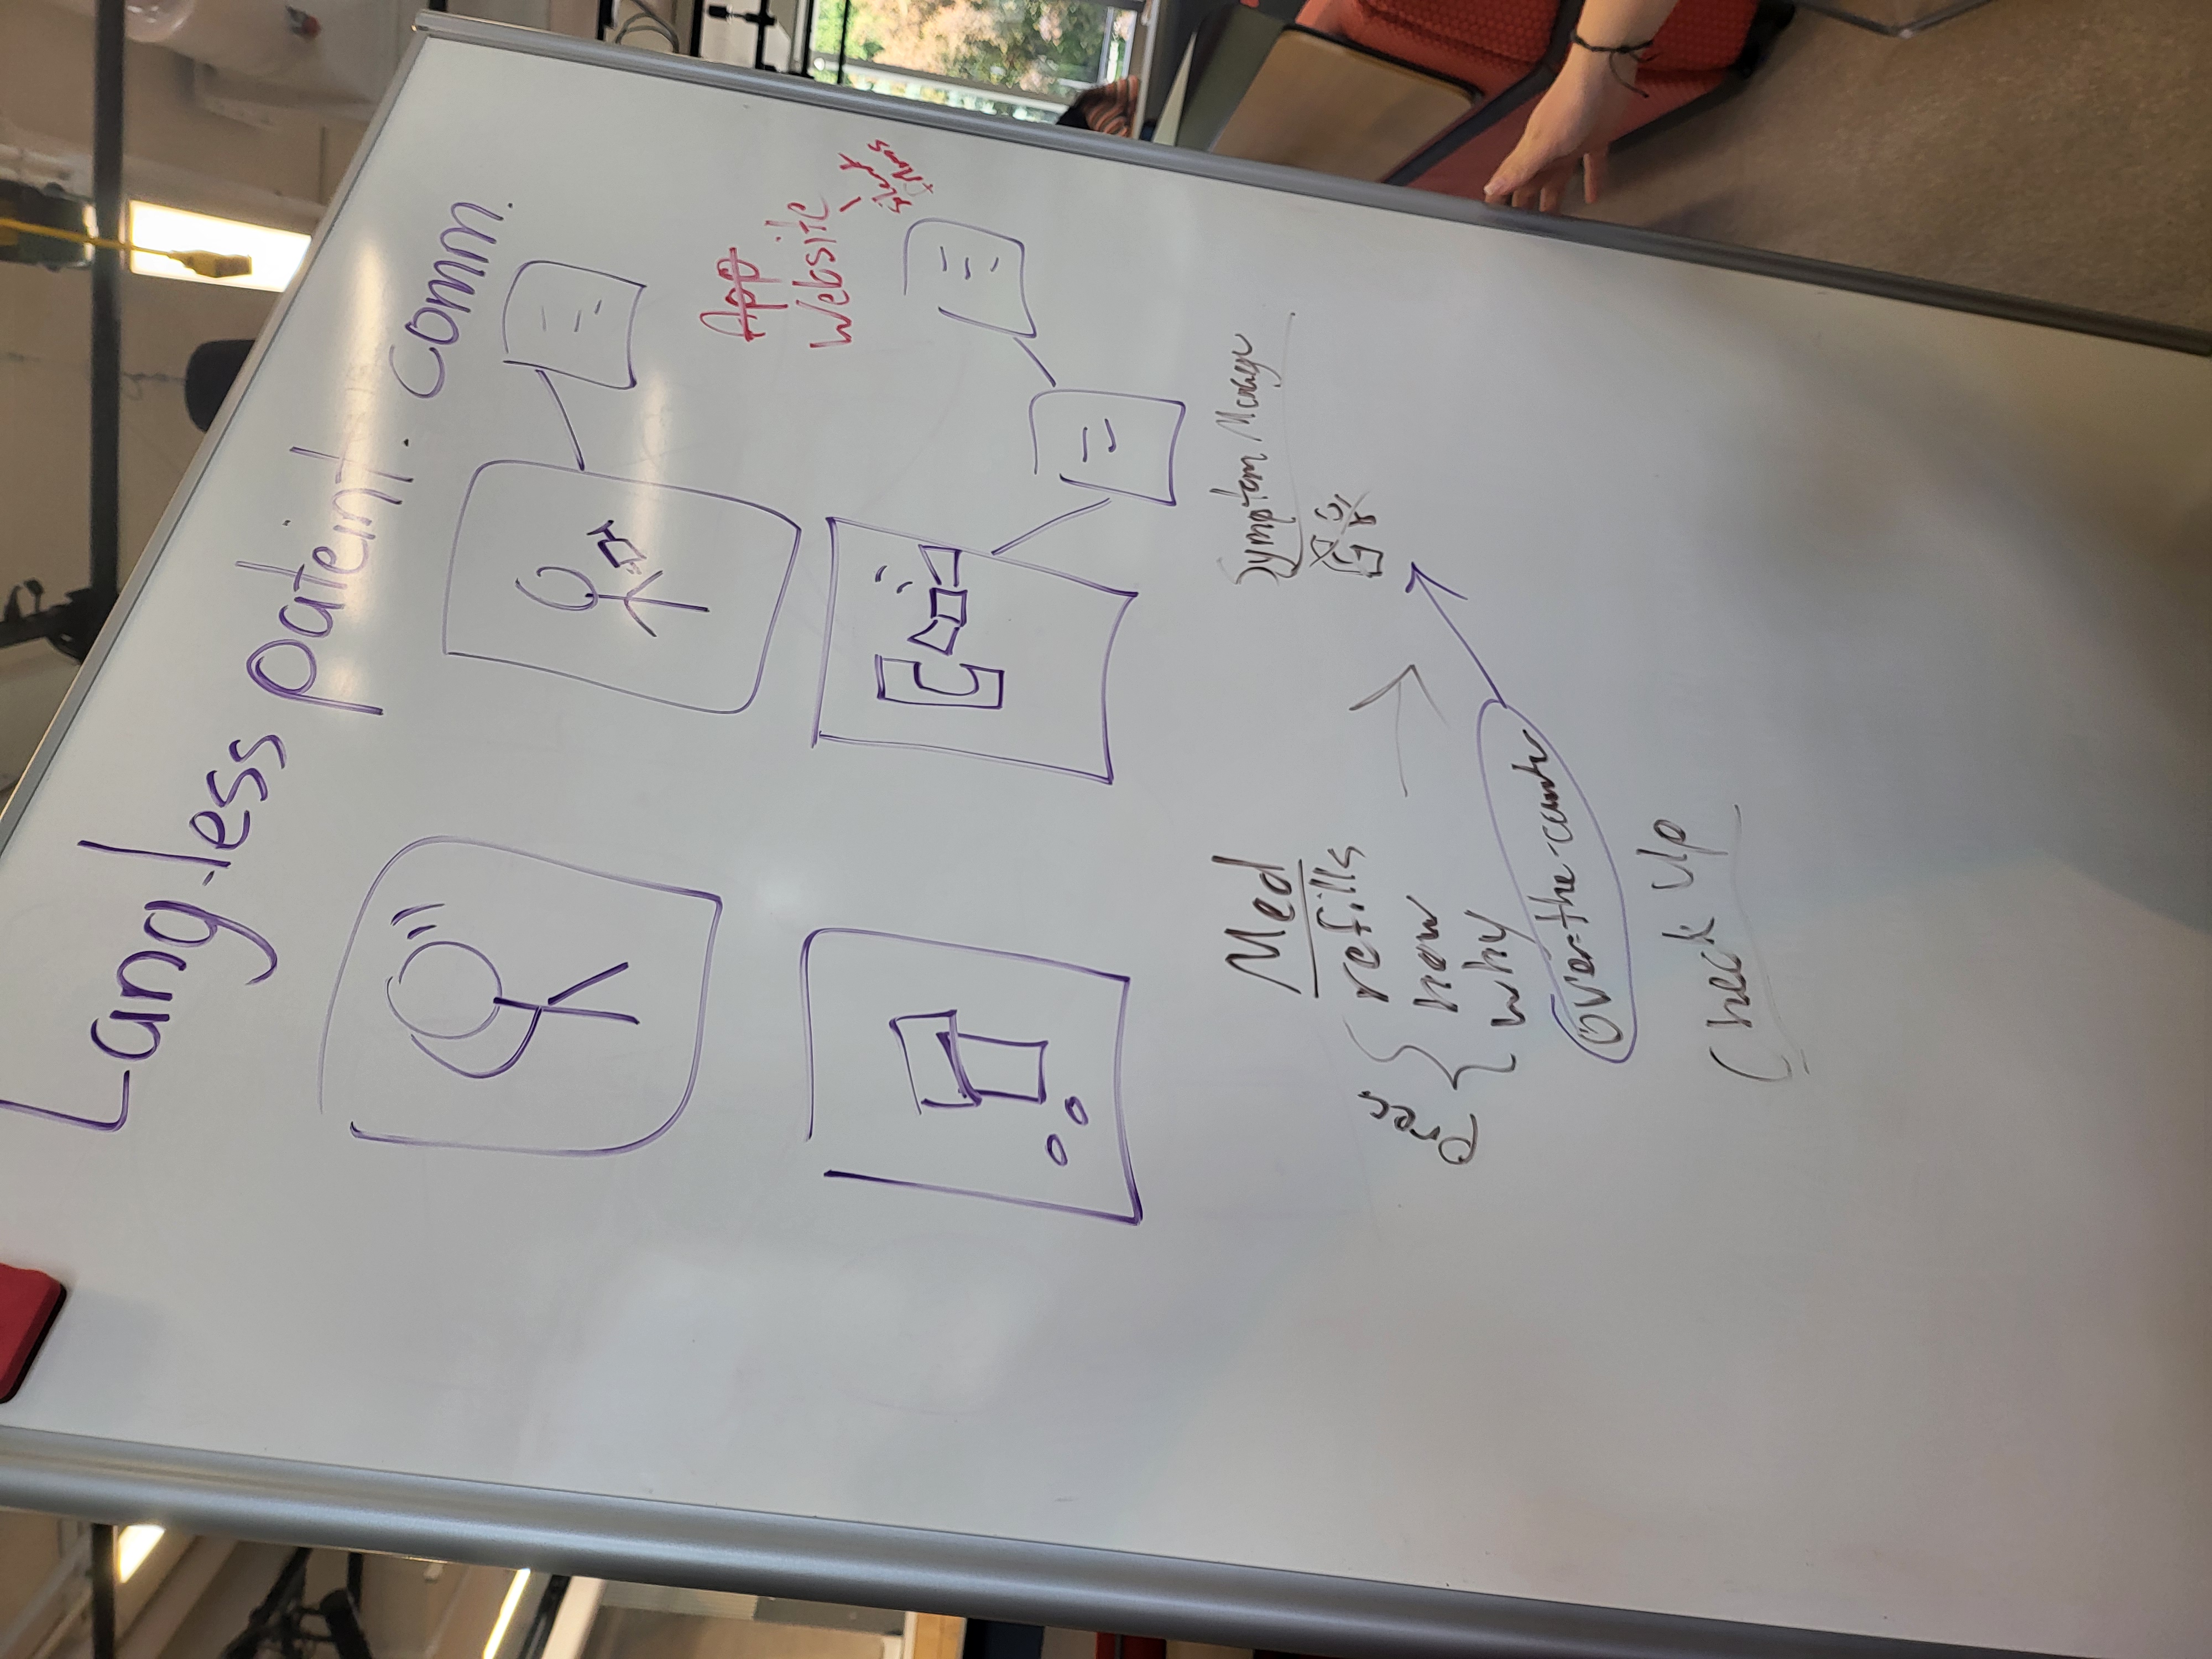 Lang-less pateint. comm.
App
Website
silent
films
Med
refills
how
why
Over-the-counter
Symptom Manage
Check Up